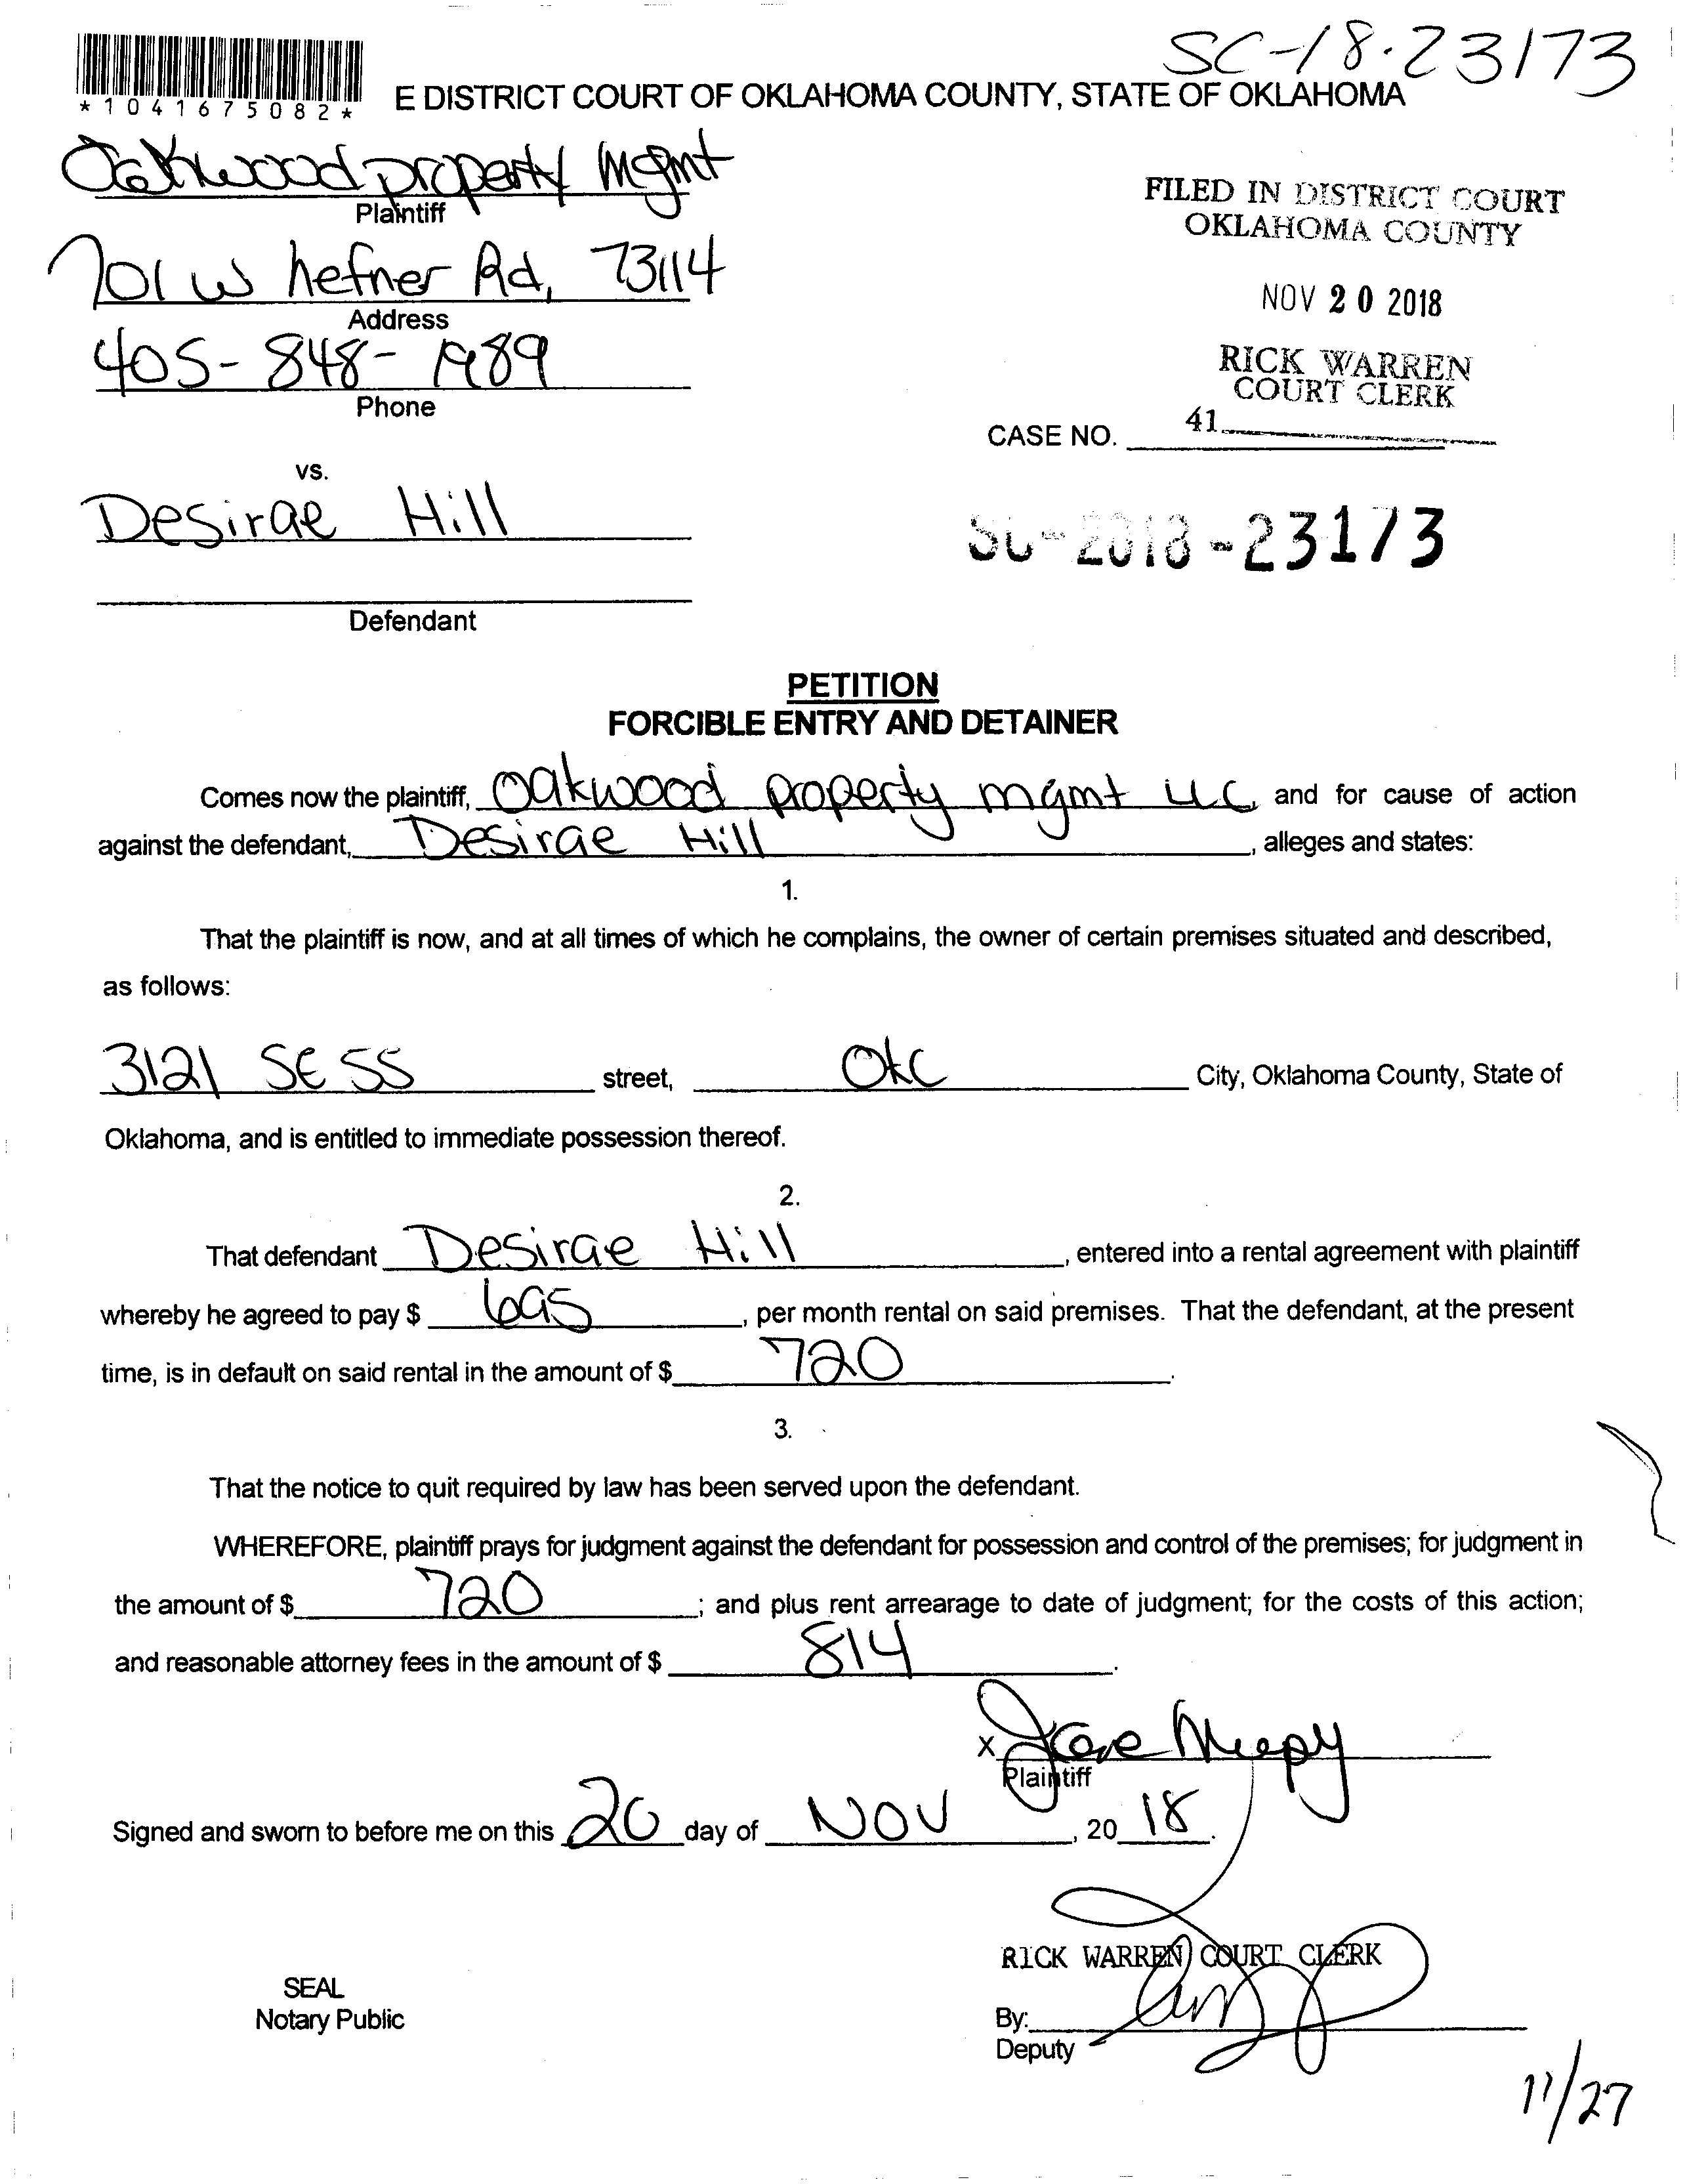 SC-18-23173
*1041675082*
E DISTRICT COURT OF OKLAHOMA COUNTY, STATE OF OKLAHOMA
Oakwood property mgmt
Plaintiff
701 W hefner Rd, 73114
Address
405-848-1989
Phone
FILED IN DISTRICT COURT
OKLAHOMA COUNTY
NOV 20 2018
RICK WARREN
COURT CLERK
41
CASE NO.
vs.
Desirae Hill
Defendant
SC-2018-23173
PETITION
FORCIBLE ENTRY AND DETAINER
Comes now the plaintiff, Oakwood property mgmt LLC, and for cause of action
against the defendant, Desirae Hill, alleges and states:
1.
That the plaintiff is now, and at all times of which he complains, the owner of certain premises situated and described,
as follows:
3121 SE 55 street, OKC City, Oklahoma County, State of
Oklahoma, and is entitled to immediate possession thereof.
2.
That defendant Desirae Hill, entered into a rental agreement with plaintiff
whereby he agreed to pay $ 695, per month rental on said premises. That the defendant, at the present
time, is in default on said rental in the amount of $ 720.
3.
That the notice to quit required by law has been served upon the defendant.
WHEREFORE, plaintiff prays for judgment against the defendant for possession and control of the premises; for judgment in
the amount of $ 720; and plus rent arrearage to date of judgment; for the costs of this action;
and reasonable attorney fees in the amount of $ 814.
X
Plaintiff
Signed and sworn to before me on this 20 day of NOV, 20 18.
RICK WARREN COURT CLERK
SEAL
Notary Public
By:
Deputy
11/27